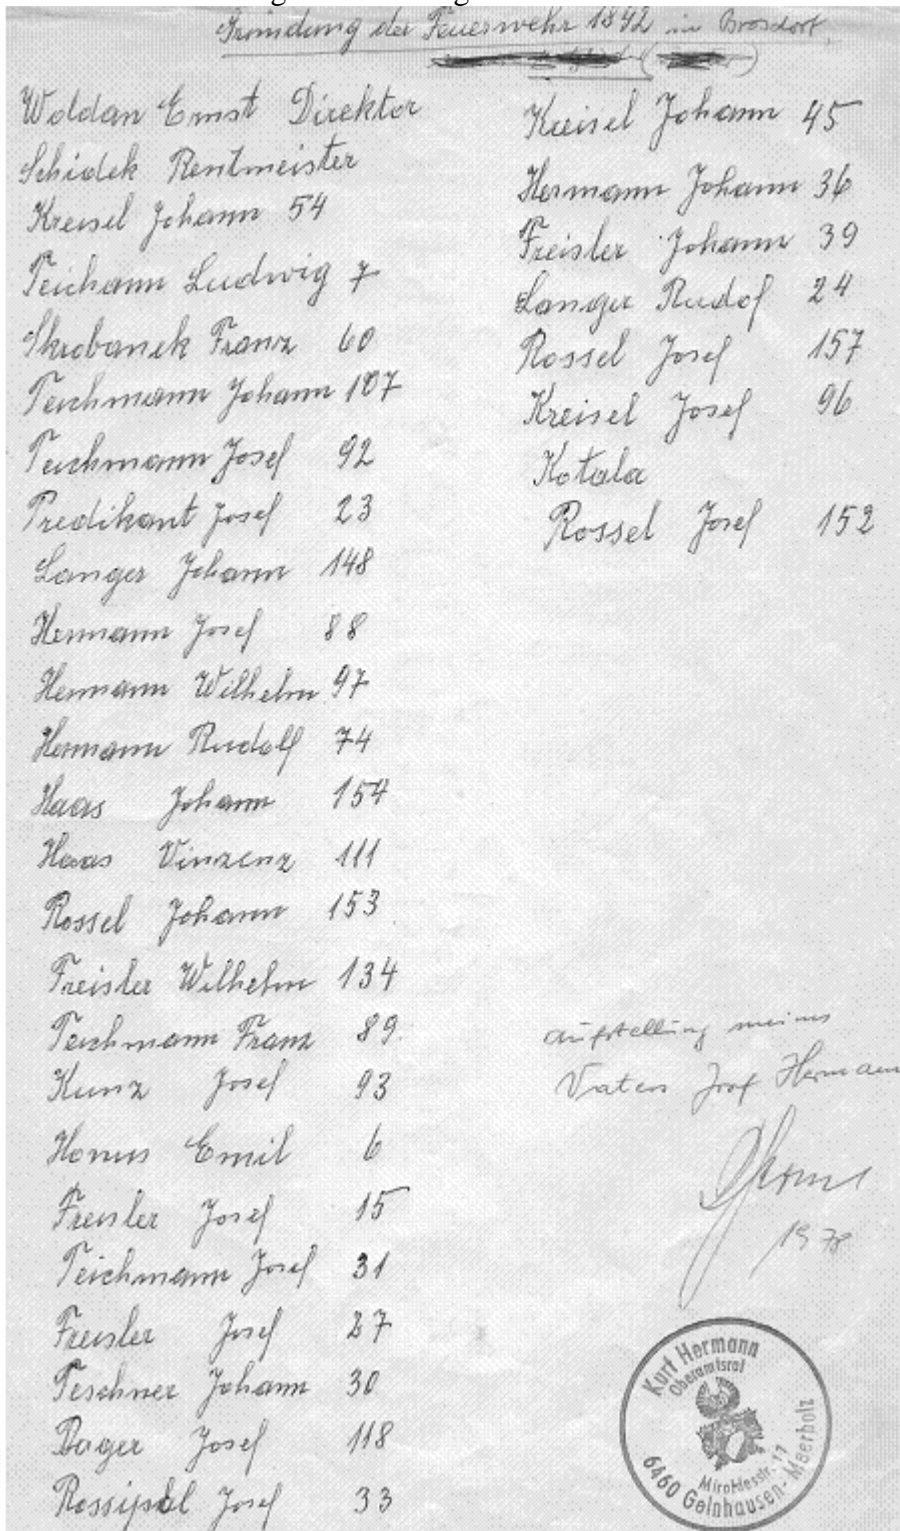 Gründung der Feuerwehr 1892 in Brosdorf
Woldan Ernst Direktor
Schidek Rentmeister
Kreisel Johann 54
Teichann Ludwig 7
Skrobanek Franz 60
Teichmann Johann 107
Teichmann Josef 92
Predikant Josef 23
Langer Johann 148
Hermann Josef 88
Hermann Wilhelm 97
Hermann Rudolf 74
Haas Johann 154
Haas Vinzenz 111
Rossel Johann 153
Freisler Wilhelm 134
Teichmann Franz 89
Kunz Josef 93
Honus Emil 6
Freisler Josef 15
Teichmann Josef 31
Freisler Josef 27
Teschner Johann 30
Bager Josef 118
Josef 33
Kreisel Johann 45
Hermann Johann 36
Freisler Johann 39
Langer Rudof 24
Rossel Josef 157
Kreisel Josef 96
Kotala
Rossel Josef 152
Aufstellung meines
Vaters Josef Hermann
1978
Kurt Hermann
Oberamtsrat
6460 Gelnhausen-Meerholz